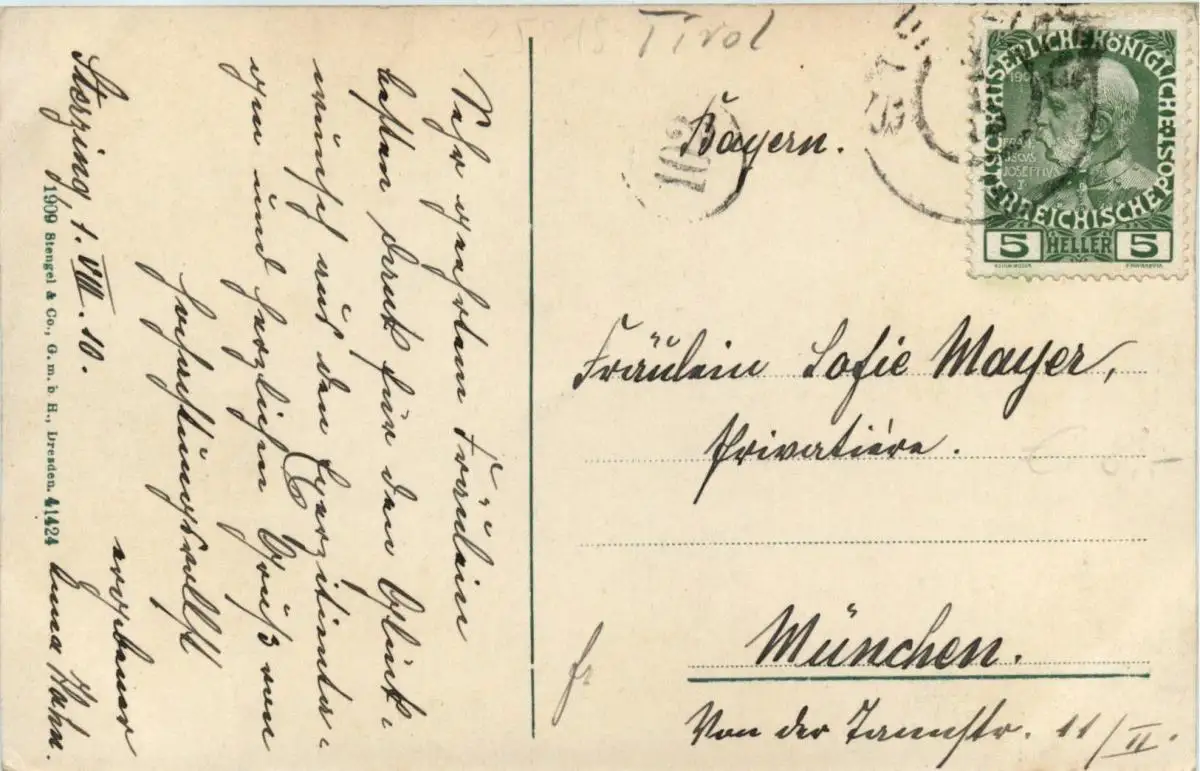 Tirol
Bayern.
KAISERLICHE KÖNIGLICHE
ÖSTERREICHISCHE POST
1908
FRANCISCUS
JOSEPHUS
I
5 HELLER 5
Fräulein Sofie Mayer,
Privatière.
München.
Von der Tannstr. 11/II.
Sehr geehrtes Fräulein
besten Dank für den Glück-
wunsch aus den
und herzlichen Gruß von
hochachtungsvollst
ergebener
Hahn.
Sterzing, 1. VIII. 10.
1909 Stengel & Co., G. m. b. H., Dresden. 41424